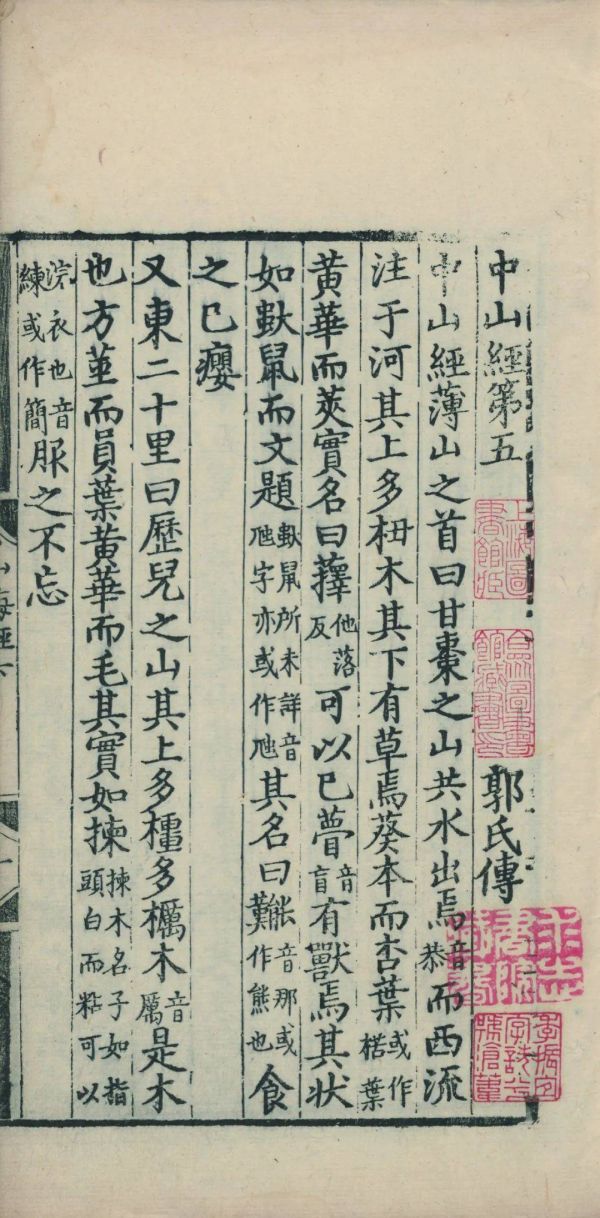 中山經第五 郭氏傳
中山經薄山之首曰甘棗之山共水出焉音恭而西流
注于河其上多杻木其下有草焉葵本而杏葉或作楛葉
黃華而莢實名曰蘀他落反可以已瞢音盲有獸焉其狀
如㹠鼠而文題㹠鼠所未詳音虺字亦或作虺其名曰㔮音那或作熊也食
之已癭
又東二十里曰歷兒之山其上多橿多櫔木音厲是木
也方莖而員葉黃華而毛其實如揀揀木名子如指頭白而粘可以
浣衣也音練或作簡服之不忘